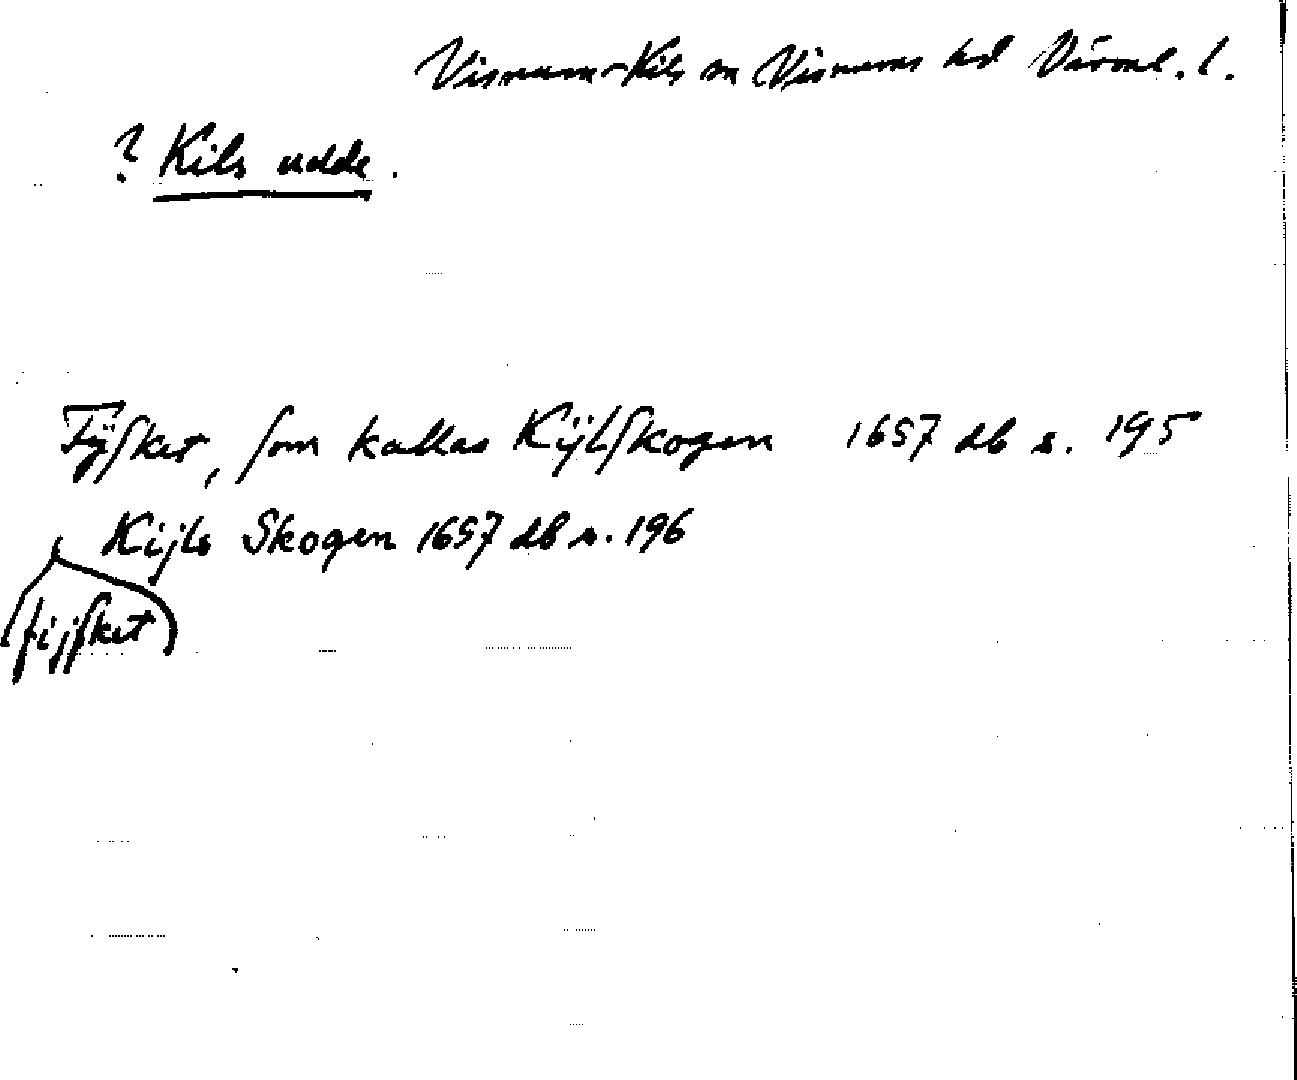 Visnums-Kils sn Visnums hd Värml. l.
? Kils udde.
Fÿsket, som kallas Kÿlskogen 1657 db s. 195
Kijls Skogen 1657 db s. 196
(fijsket)